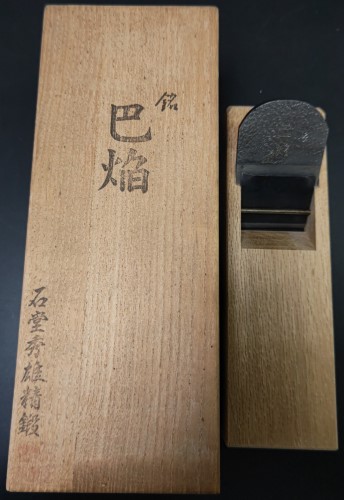 銘
巴焔
石堂秀雄精鍛